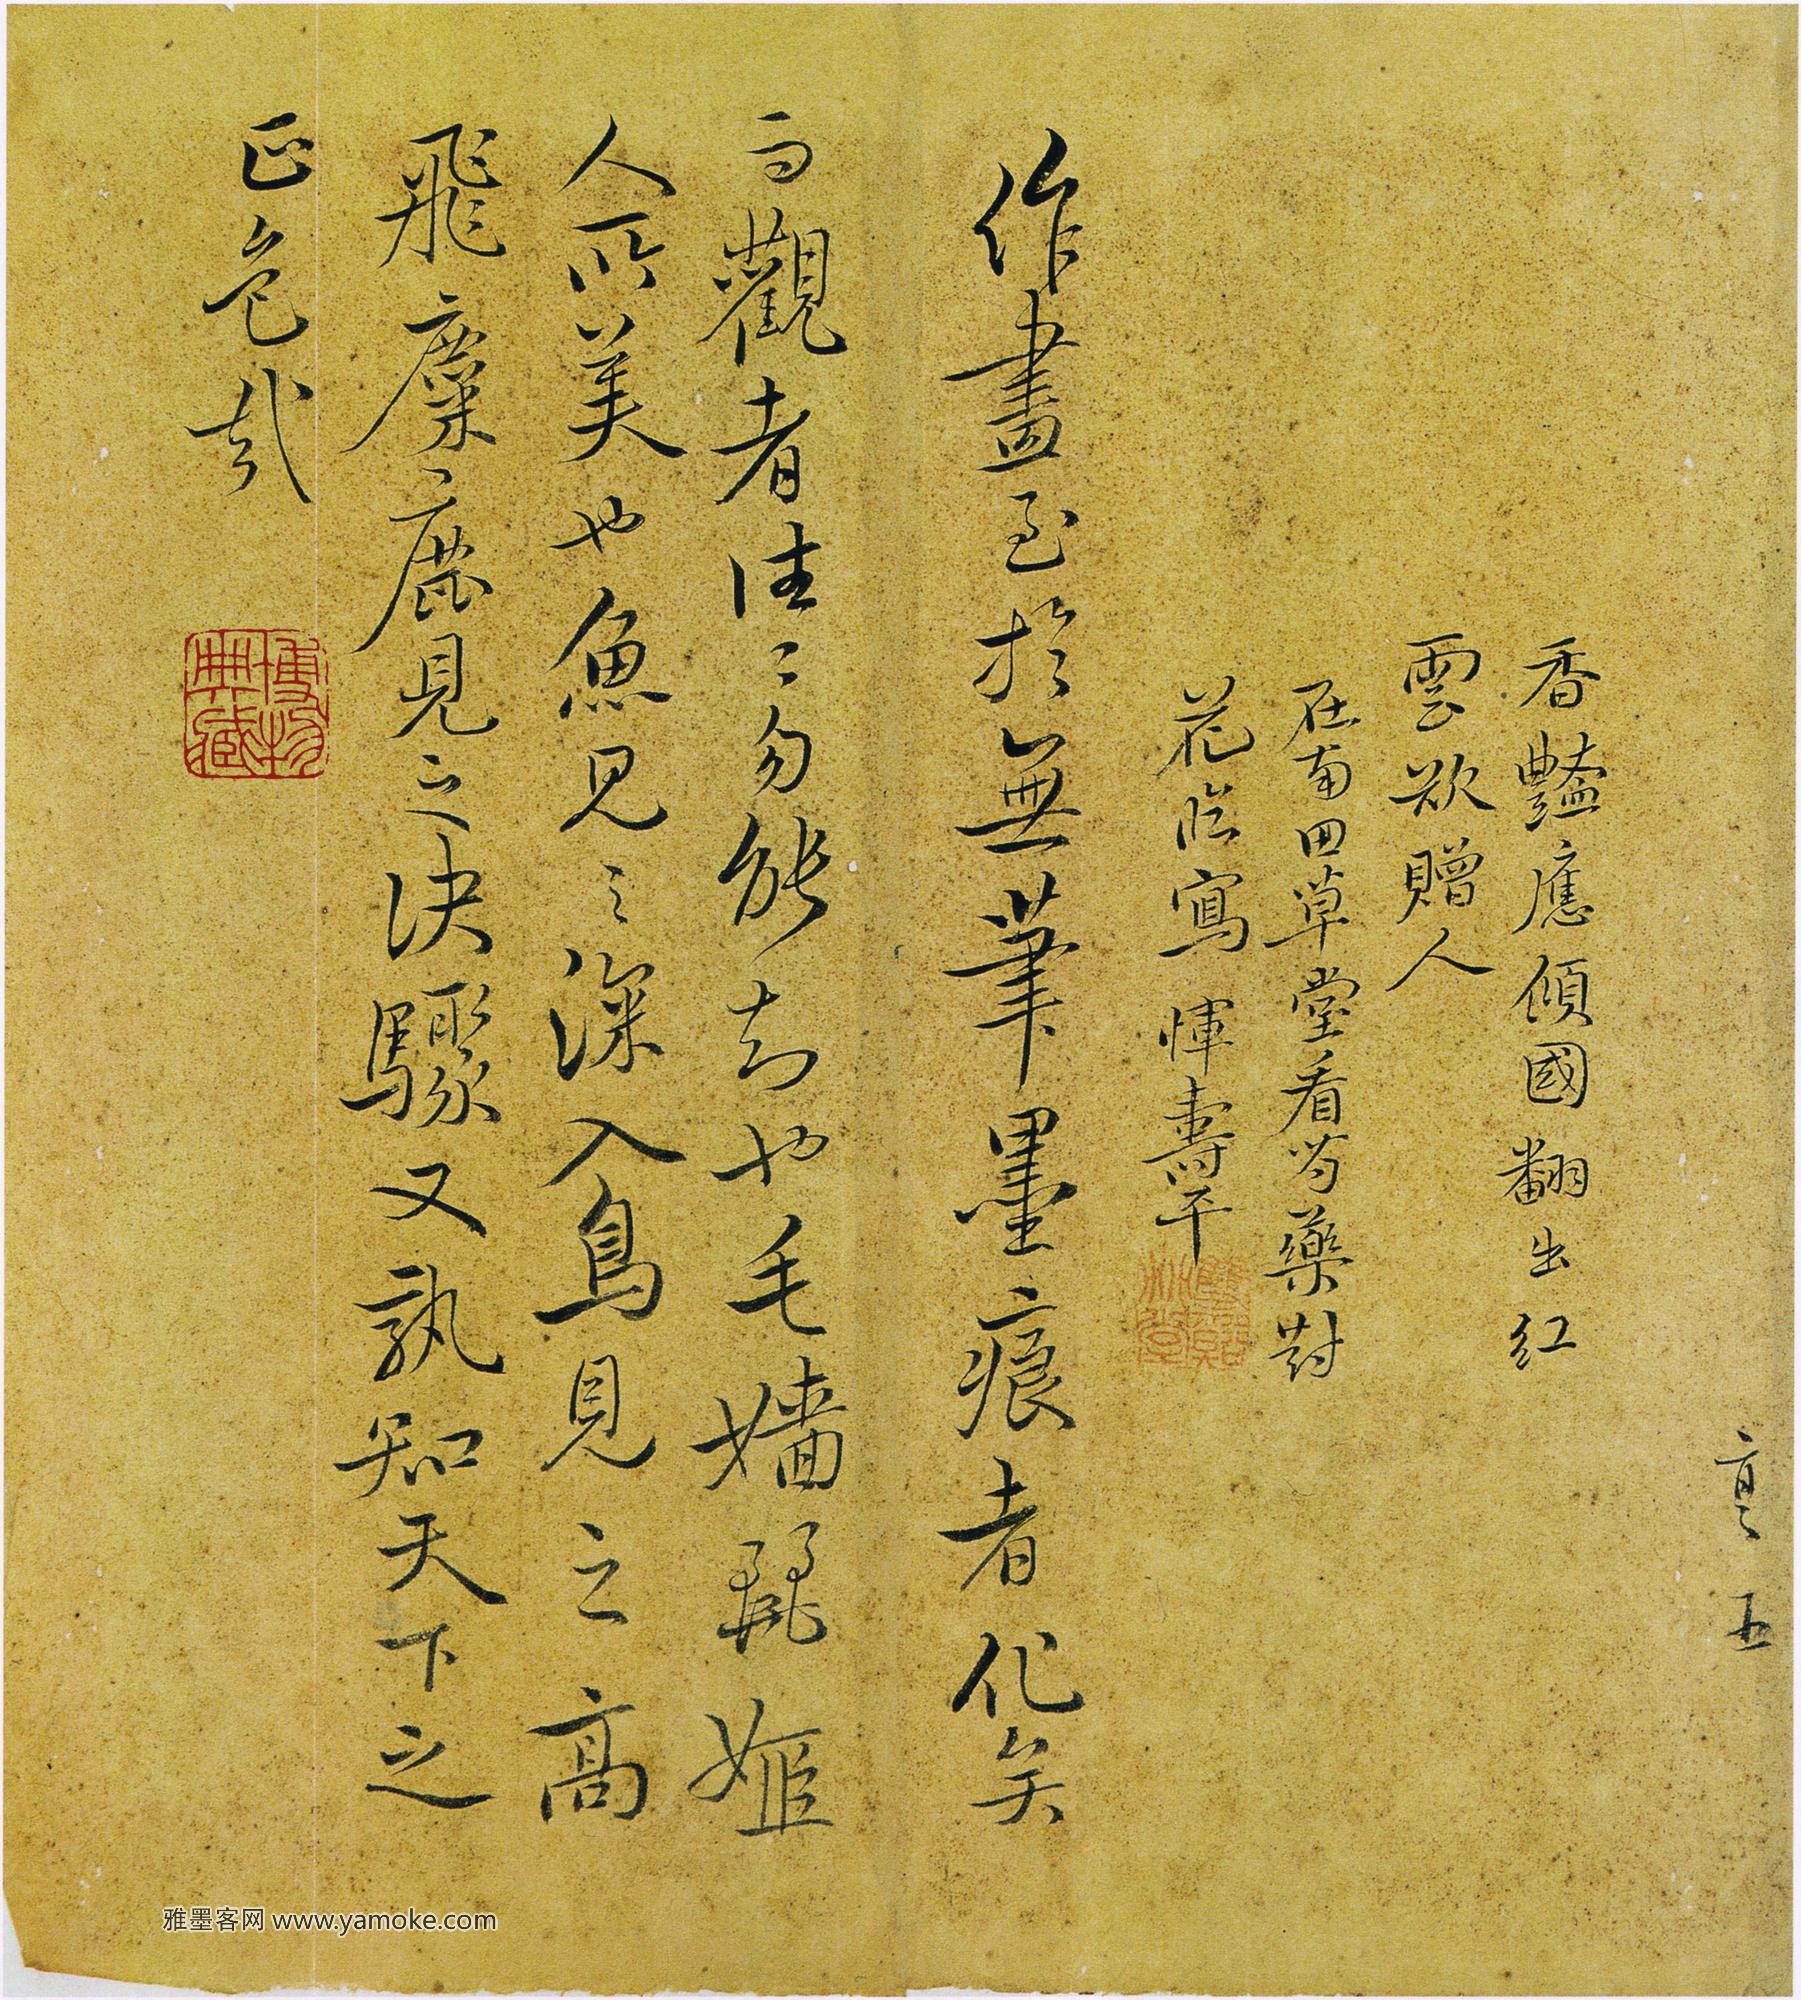 亨五
香豔應傾國翻出紅
雲欲贈人
在南田草堂看芍藥對
花臨寫 惲壽平
作畫至於無筆墨痕者化矣
而觀者往〻勿能知也毛嬙麗姬
人所美也魚見之深入鳥見之高
飛麋鹿見之決驟又孰知天下之
正色哉
博物典藏
雅墨客网 www.yamoke.com